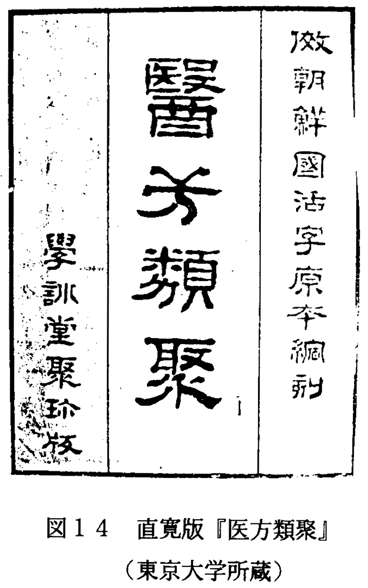 傚朝鮮國活字原本
醫方類聚
學訓堂聚珍版
図14 直寛版『医方類聚』
(東京大学所蔵)